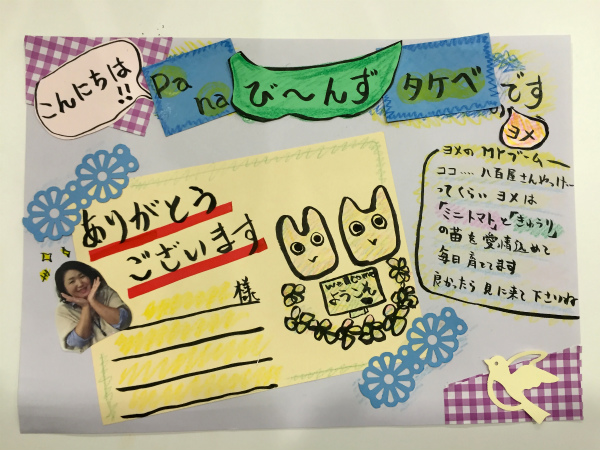 こんにちは!!
Pana
び〜んず
タケベ
です
の
ヨメ
ありがとう
ございます
様
Welcome
ようこそ
ヨメの MYブーム
ココ‥‥八百屋さんやっけ‥
ってくらい ヨメは
「ミニトマト」と「きゅうり」
の苗を愛情込めて
毎日育ててます
良かったら見に来て下さいね